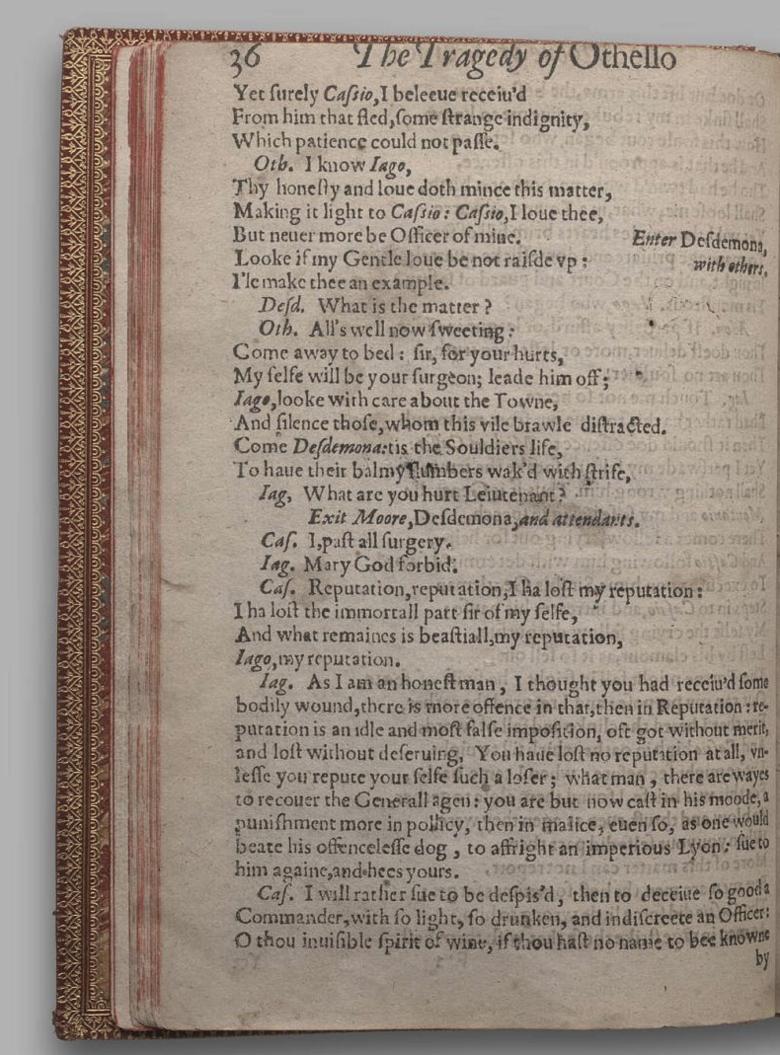 36 The Tragedy of Othello
Yet ſurely Caſsio,I beleeue receiu'd
From him that fled,ſome ſtrange indignity,
Which patience could not paſſe.
Oth. I know Iago,
Thy honeſty and loue doth mince this matter,
Making it light to Caſsio: Caſsio,I loue thee,
But neuer more be Officer of mine. Enter Deſdemona,
Looke if my Gentle loue be not raiſde vp: with others,
I'le make thee an example.
Deſd. What is the matter?
Oth. All's well now ſweeting:
Come away to bed: ſir, for your hurts,
My ſelfe will be your ſurgeon; leade him off;
Iago,looke with care about the Towne,
And ſilence thoſe,whom this vile brawle diſtracted.
Come Deſdemona:tis the Souldiers life,
To haue their balmy ſlumbers wak'd with ſtrife,
Iag, What are you hurt Leiutenant?
Exit Moore,Deſdemona,and attendants.
Caſ. I,paſt all ſurgery.
Iag. Mary God forbid.
Caſ. Reputation,reputation,I ha loſt my reputation:
I ha loſt the immortall part ſir of my ſelfe,
And what remaines is beaſtiall,my reputation,
Iago,my reputation.
Iag. As I am an honeſt man, I thought you had receiu'd ſome
bodily wound,there is more offence in that,then in Reputation: re-
putation is an idle and moſt falſe impoſition, oft got without merit,
and loſt without deſeruing, You haue loſt no reputation at all, vn-
leſſe you repute your ſelfe ſuch a loſer; what man, there are wayes
to recouer the Generall agen: you are but now caſt in his moode, a
puniſhment more in pollicy, then in malice, euen ſo, as one would
beate his offenceleſſe dog, to affright an imperious Lyon: ſue to
him againe,and hees yours.
Caſ. I will rather ſue to be deſpis'd, then to deceiue ſo good a
Commander,with ſo light, ſo drunken, and indiſcreete an Officer:
O thou inuiſible ſpirit of wine, if thou haſt no name to bee knowne
by